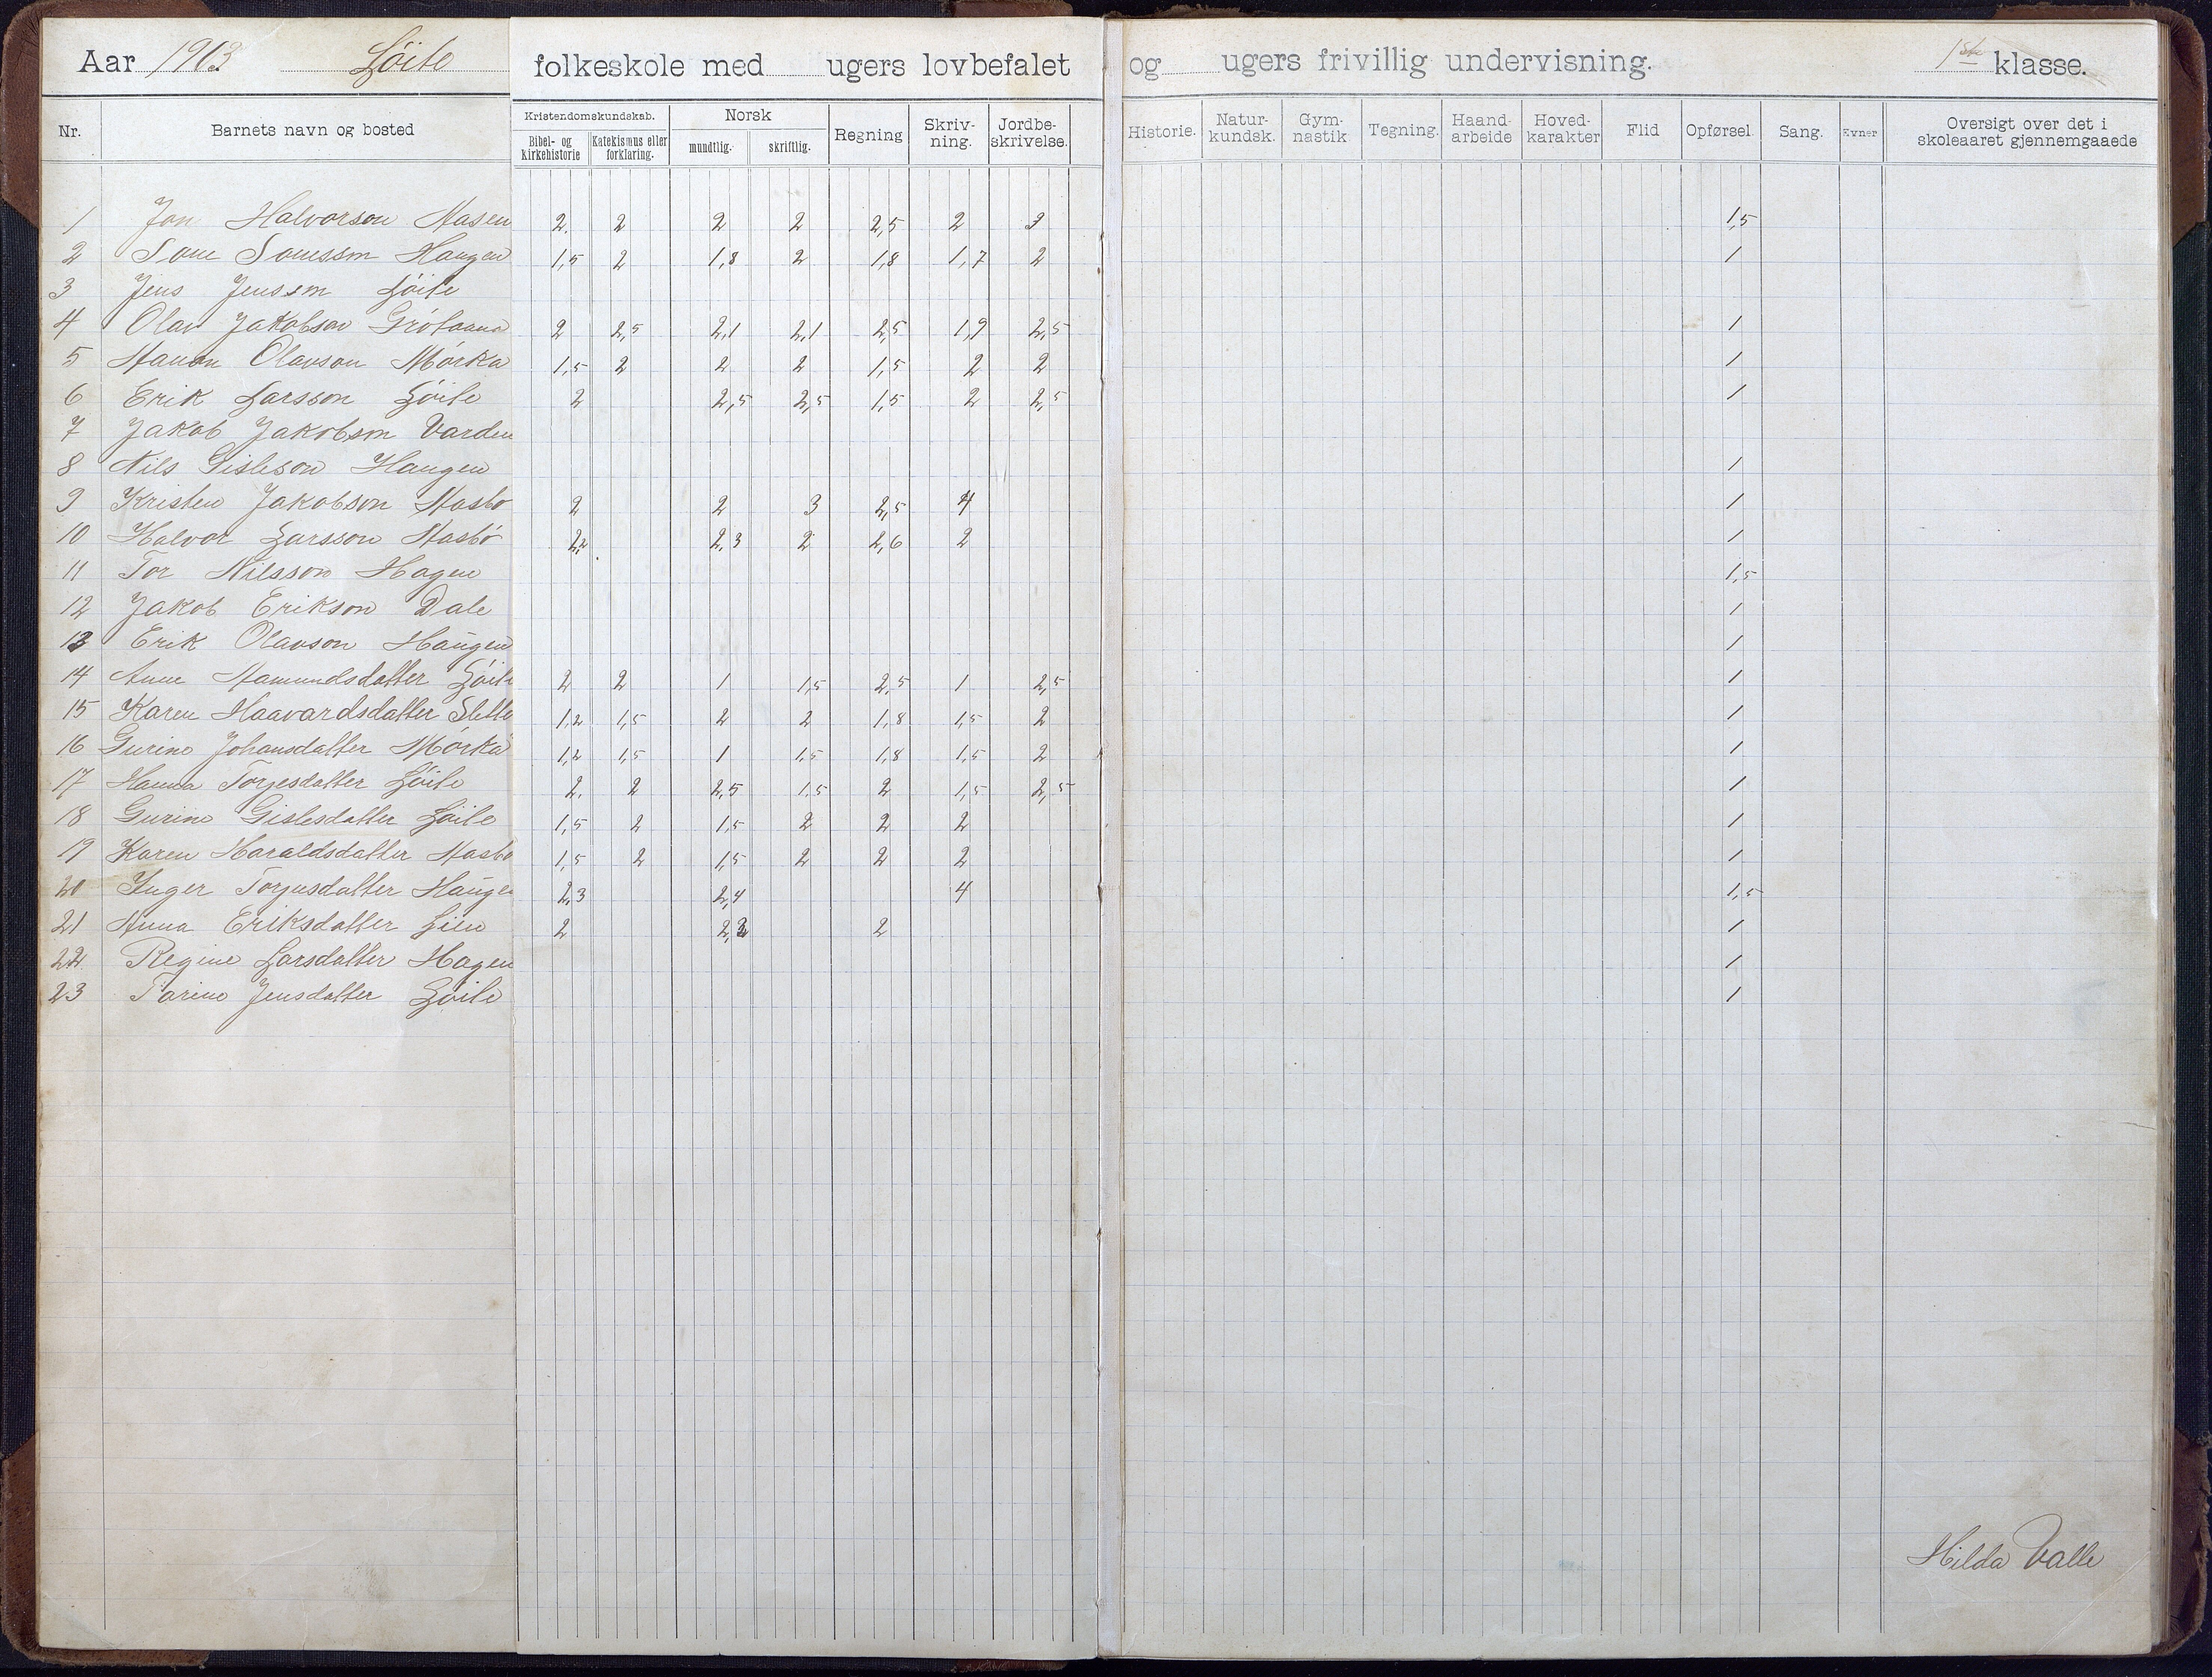 Aar 1903 Löite folkeskole med ugers lovbefalet og ugers frivillig undervisning. 1ste klasse.
Nr. Barnets navn og bosted Kristendomskundskab. Bibel- og kirkehistorie Katekismus eller forklaring. Norsk mundtlig. skriftlig. Regning Skriv-ning. Jordbe-skrivelse. Historie. Natur-kundsk. Gym-nastik Tegning. Haand-arbeide Hoved-karakter Flid Opførsel. Sang. Evner Oversigt over det i skoleaaret gjennemgaaede
1 Jon Halvorson Aasen 2. 2 2 2 2,5 2 3 1,5
2 Haugen 1,5 2 1,8 2 1,8 1,7 2 1
3 Jens Jensson Löite
4 Olav Jakobson 2 2,5 2,1 2,1 2,5 1,9 2,5 1
5 Olavson Mörka 1,5 2 2 2 1,5 2 2 1
6 Erik Larsson Löite 2 2,5 2,5 1,5 2 2,5 1
7 Jakob Jakobson Varden
8 Nils Gisleson Haugen 1
9 Kristen Jakobson Aasbö 2 2 3 2,5 4 1
10 Halvor Larsson Aasbö 2,2 2,3 2 2,6 2 1
11 Tor Nilsson Hagen 1,5
12 Jakob Erikson Dale 1
13 Erik Olavson Haugen 1
14 Anne Aamundsdatter Löite 2 2 1 1,5 2,5 1 2,5 1
15 Karen Haavardsdatter Slette 1,2 1,5 2 2 1,8 1,5 2 1
16 Gurine Johansdatter Mörka 1,2 1,5 1 1,5 1,8 1,5 2 1
17 Hanna Torjesdatter Löite 2. 2 2,5 1,5 2 1,5 2,5 1
18 Gurine Gislesdatter Löite 1,5 2 1,5 2 2 2 1
19 Karen Haraldsdatter Aasbö 1,5 2 1,5 2 2 2 1
20 Inger Torjusdatter Haugen 2,3 2,4 4 1,5
21 Anna Eriksdatter Lien 2 2,2 2 1
22 Regine Larsdatter Hagen 1
23 Tarine Jensdatter Löite 1
Hilda Valle